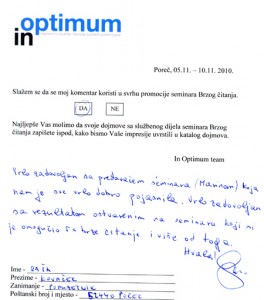 in optimum
Poreč, 05.11. – 10.11. 2010.
Slažem se da se moj komentar koristi u svrhu promocije seminara Brzog čitanja.
DA NE
Najljepše Vas molimo da svoje dojmove sa službenog dijela seminara Brzog
čitanja zapišete ispod, kako bismo Vaše impresije uvrstili u katalog dojmova.
In Optimum team
Vrlo zadovoljan sa predavačem seminara (Mariom) koja
nam je sve vrlo dobro pojasnila. Vrlo zadovoljan
sa rezultatom ostvarenim na seminaru koji mi
je omogućio brže čitanje i više od toga.
Hvala!
Ime -
Prezime -
Zanimanje -
Poštanski broj i mjesto - 52440 POREČ